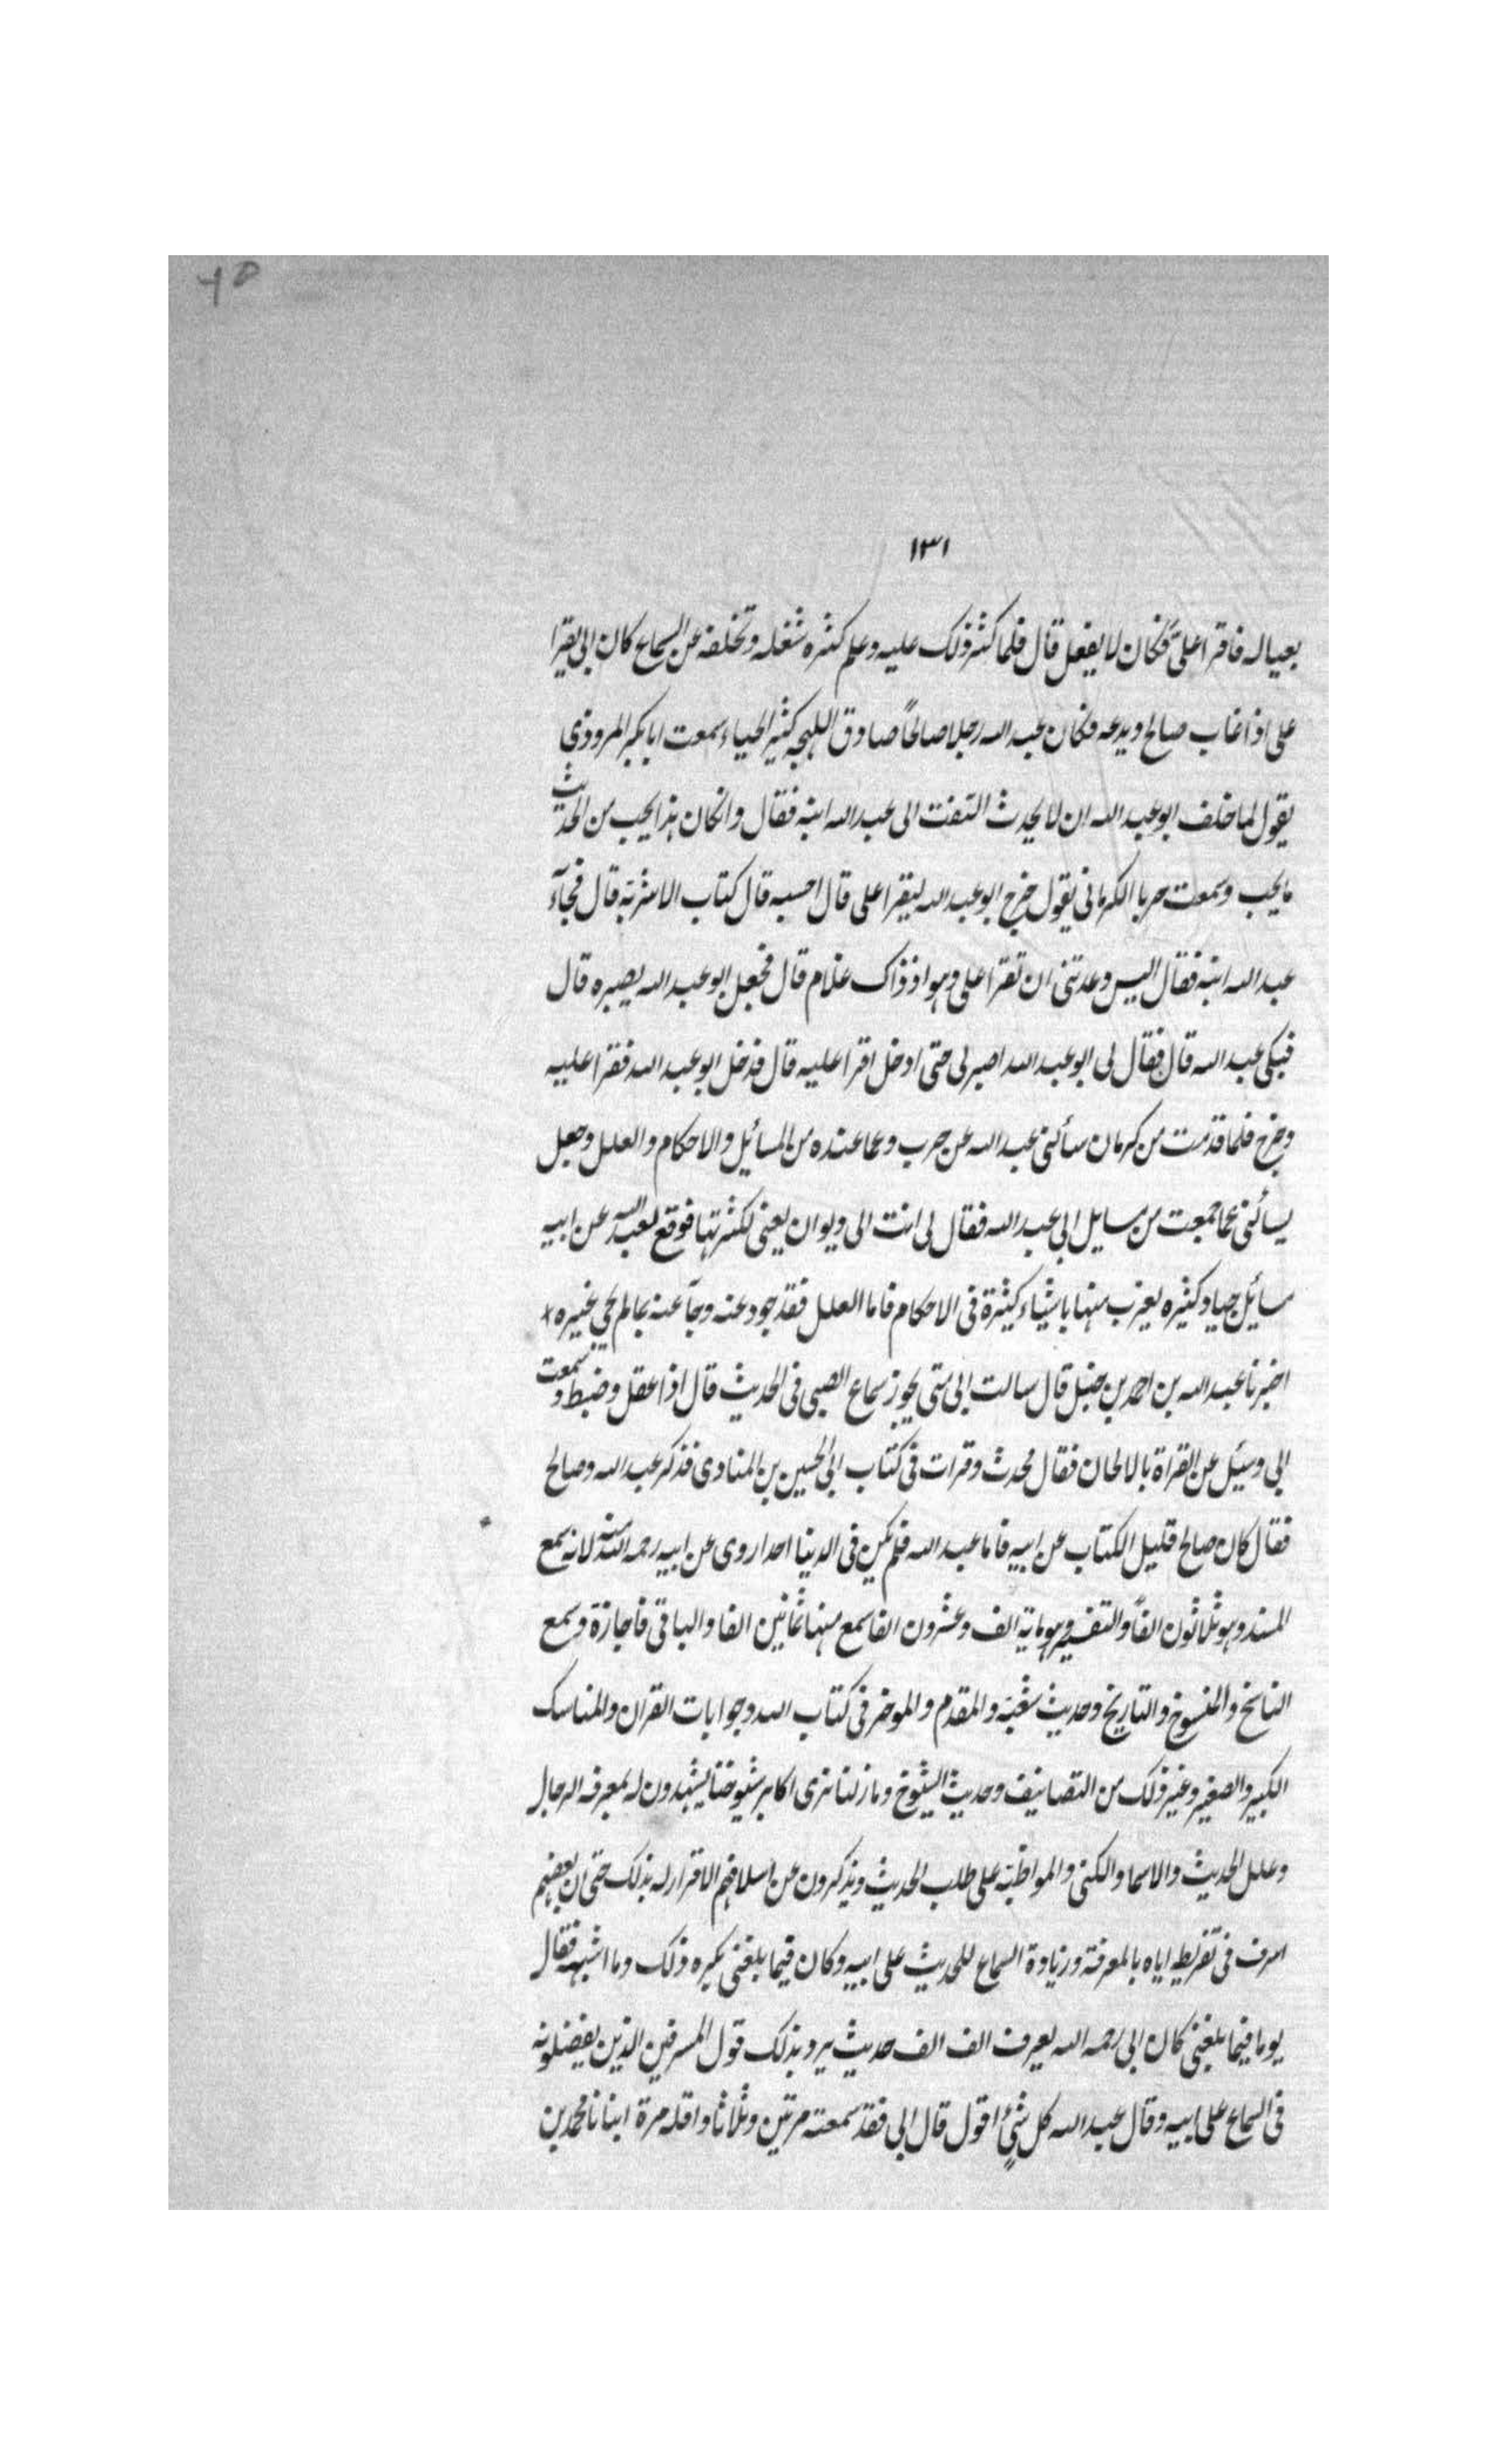 ٦٥
١٣١
بعياله فاقرا علىّ فكان لا يفعل قال فلما كثر ذلك عليه وعلم كثره شغله وتخلفه عن السماع كان ابى يقرا
على اذا غاب صالح ويدعه فكان عبد الله رجلا صالحًا صادق اللهجه كثير الحياء سمعت ابا بكر المروذى
يقول لما حلف ابو عبد الله ان لا يحدث التفت الى عبد الله ابنه فقال وانكان هذا يحب من الحديث
ما يحب وسمعت حربا الكرمانى يقول خرج ابو عبد الله ليقرا على قال احسبه قال كتاب الاشربة قال فجآء
عبد الله ابنه فقال اليس وعدتنى ان تقرا على وهو اذ ذاك غلام قال فجعل ابو عبد الله يصبره قال
فبكى عبد الله قال فقال لى ابو عبد الله اصبر لى حتى ادخل اقرا عليه قال فدخل ابو عبد الله فقرا عليه
وخرج فلما قدمت من كرمان سألنى عبد الله عن حرب وعما عنده من المسائيل والاحكام والعلل وجعل
يسألنى عما جمعت من مسايل ابى عبد الله فقال لى انت الى ديوان يعنى لكثرتها فوقع لعبد الله عن ابيه
مسائيل جياد كثيره يعزب منها باشياء كثيرة فى الاحكام فاما العلل فقد جود عنه وجآ عنه بما لم يجى بخيره
اخبرنا عبد الله بن احمد بن حنبل قال سالت ابى متى يجوز سماع الصبى فى الحديث قال اذا عقل وضبط وسمعت
ابى وسئيل عن القراة بالالحان فقال محدث وقرات فى كتاب ابى الحسين بن المنادى فذكر عبد الله وصالح
فقال كان صالح قليل الكتاب عن ابيه فاما عبد الله فلم يكن فى الدنيا احد اروى عن ابيه رحمه الله منه لانه سمع
المسند وهو ثلاثون الفًا والتفسير وهو ماية الف وعشرون الفا سمع منها ثمانين الفا والباقى فاجازة وسمع
الناسخ والمنسوخ والتاريخ وحديث شعبة والمقدم والموخر فى كتاب الله وجوابات القران والمناسك
الكبير والصغير وغير ذلك من التصانيف وحديث الشيوخ وما زلنا نرى اكابر شيوخنا يشهدون له بمعرفه الرجال
وعلل الحديث والاسما والكنى والمواظبة على طلب الحديث ويذكرون عن اسلافهم الاقرار له بذلك حتى ان بعضهم
اسرف فى تقريظه اياه بالمعرفة وزيادة السماع للحديث على ابيه وكان فيما بلغنى يكره ذلك وما اشبهه فقال
يوما فيما بلغنى كان ابى رحمه الله يعرف الف الف حديث يرد بذلك قول المسرفين الذين يفضلونه
فى السماع على ابيه وقال عبد الله كل شئ اقول قال ابى فقد سمعته مرتين وثلاثا واقله مرة انبانا محمد بن